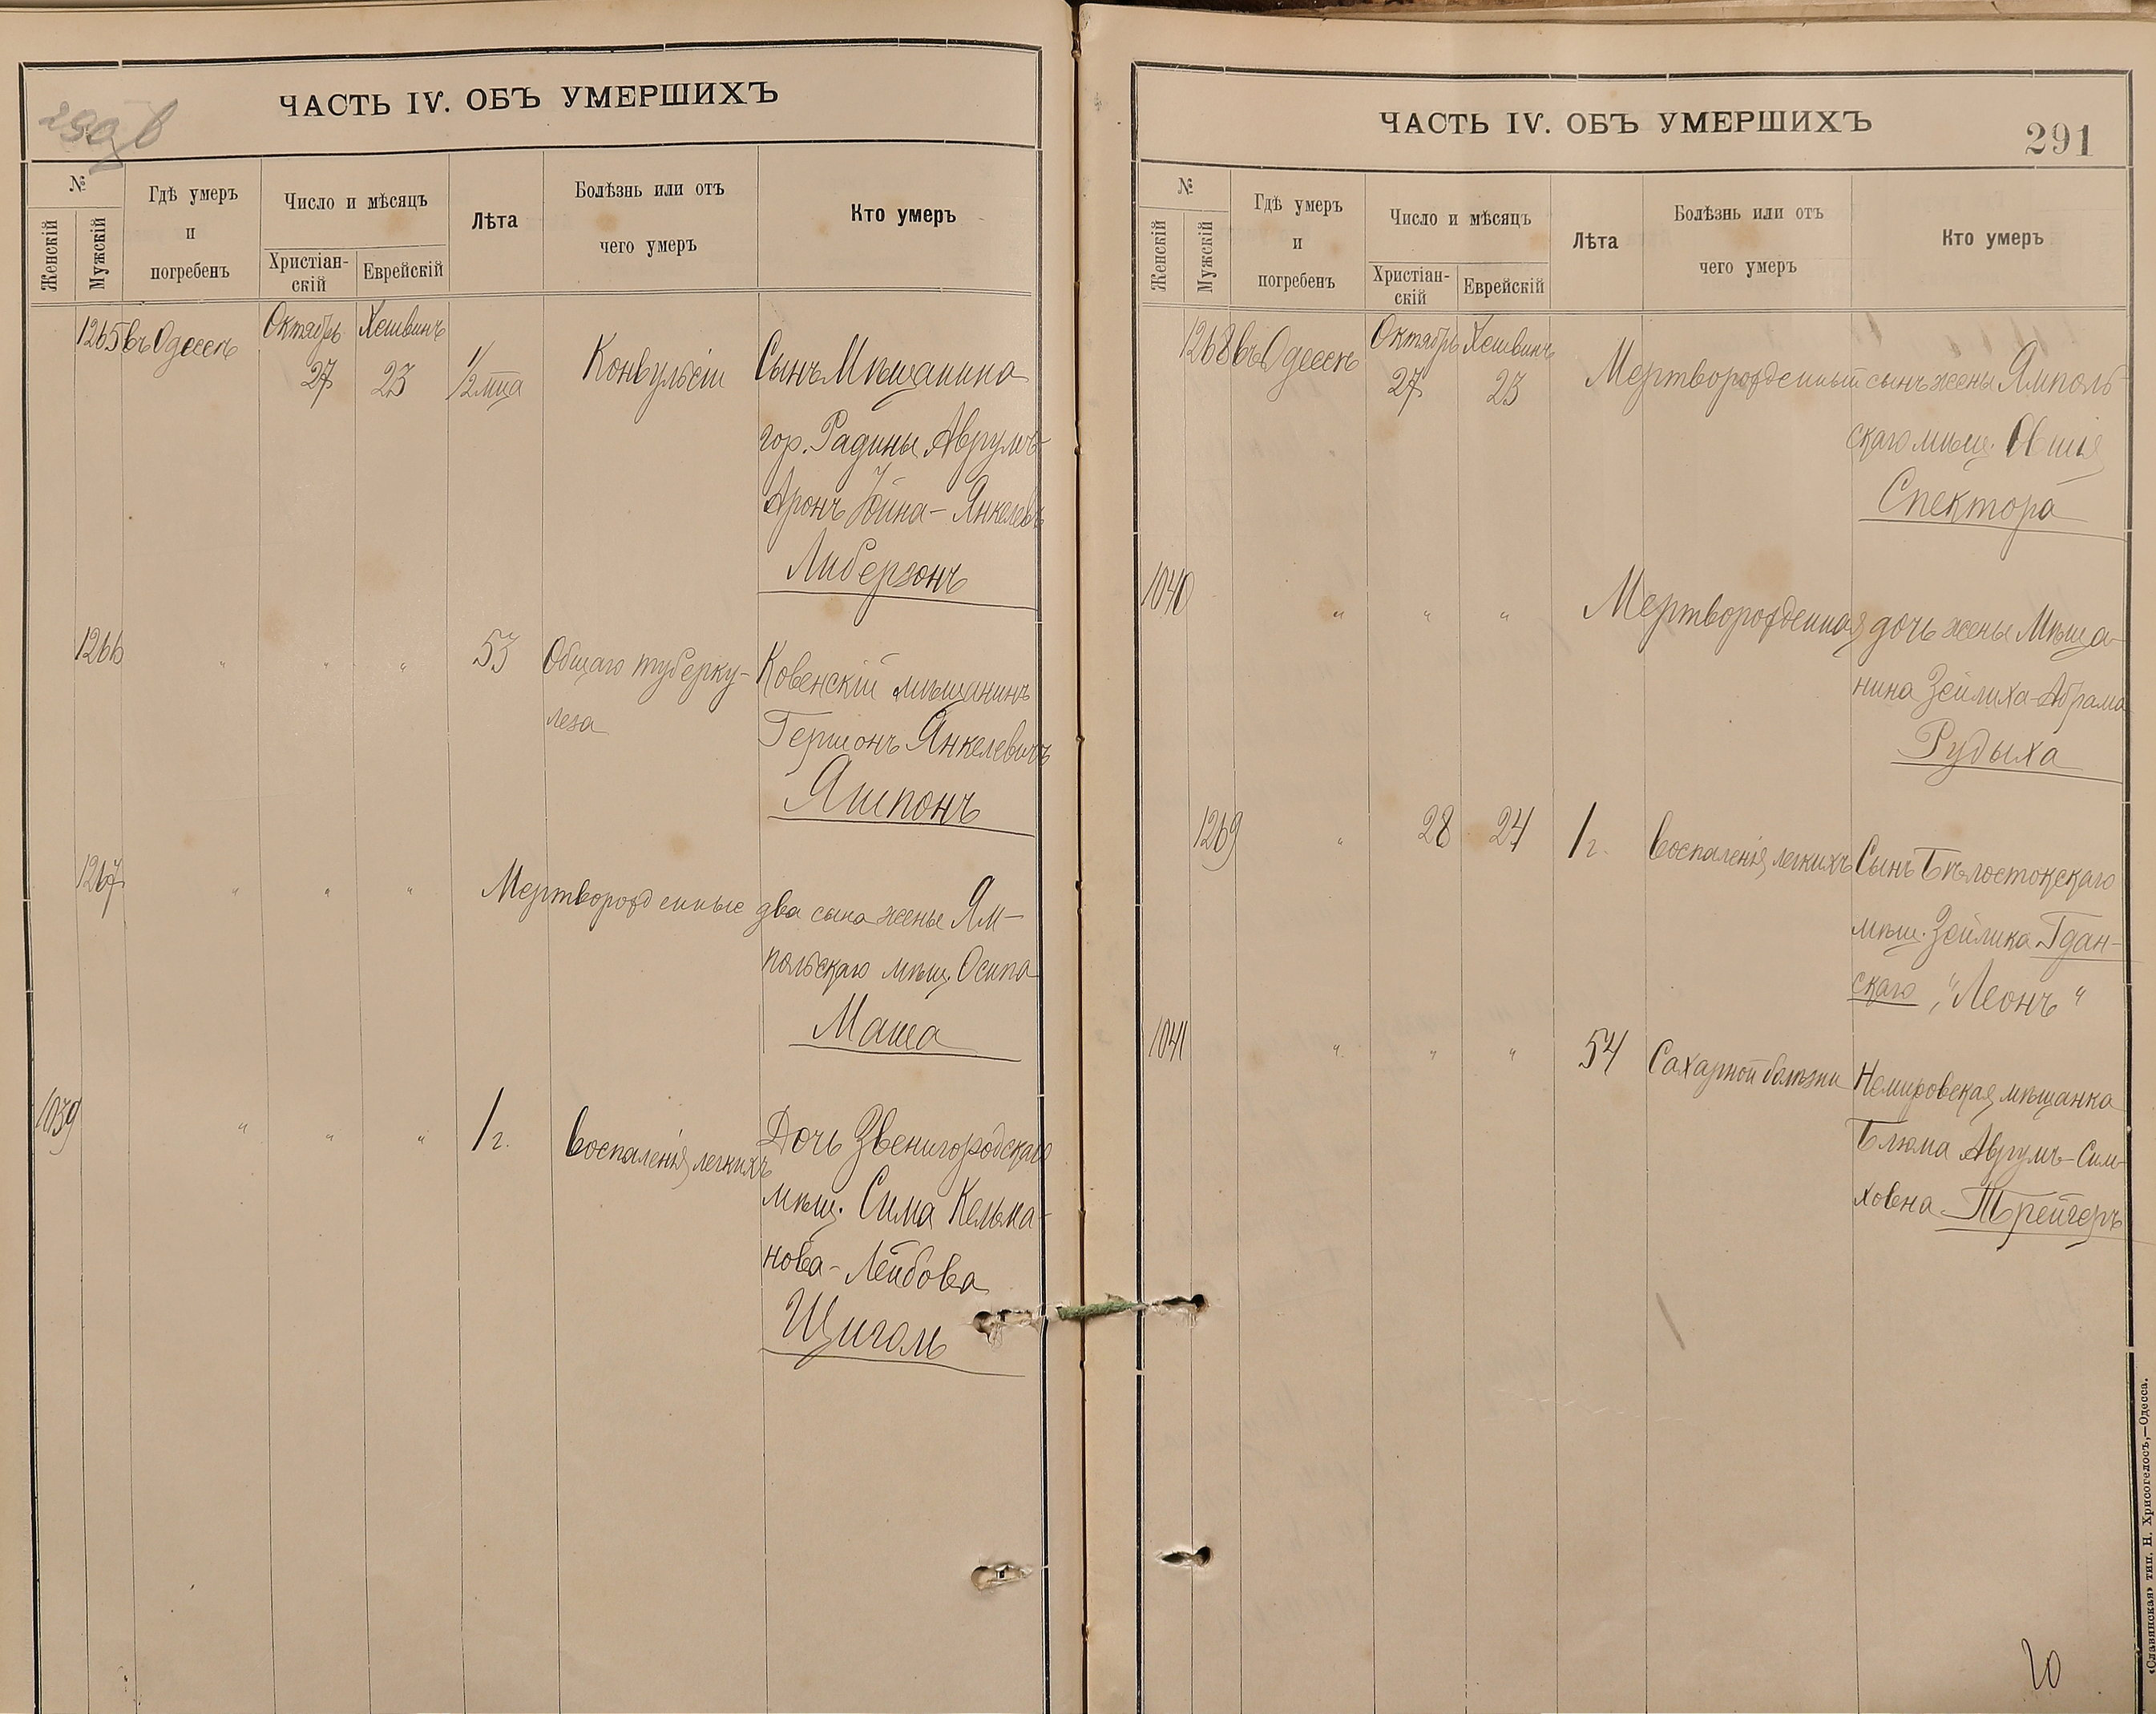 290 в
ЧАСТЬ IV. ОБЪ УМЕРШИХЪ
№
Женскій
Мужскій
Гдѣ умеръ
и
погребенъ
Число и мѣсяцъ
Христіан-
скій
Еврейскій
Лѣта
Болѣзнь или отъ
чего умеръ
Кто умеръ
1265 въ Одессѣ Октябрь 27 Хешвинъ 23 1/2 мца Конвульсіи Сынъ Мѣщанина
гор. Радины Аврумъ-
Аронъ Іойна - Янкелевъ
Либерзонъ
1266 " " " 53 Общаго туберку- Ковенскій мѣщанинъ
леза Гершонъ Янкелевичъ
Яшпонъ
1267 " " " Мертворожденные два сына жены Ям-
польскаго мѣщ. Осипа
Маша
1039 " " " 1 г. Воспаленія легкихъ Дочь Звенигородскаго
мѣщ. Сима Кельма-
нова - Лейбова
Щиголь
ЧАСТЬ IV. ОБЪ УМЕРШИХЪ
291
№
Женскій
Мужскій
Гдѣ умеръ
и
погребенъ
Число и мѣсяцъ
Христіан-
скій
Еврейскій
Лѣта
Болѣзнь или отъ
чего умеръ
Кто умеръ
1268 въ Одессѣ Октябрь 27 Хешвинъ 23 Мертворожденный сынъ жены Ямполь-
скаго мѣщ. Овшія
Спектора
1040 " " " Мертворожденная дочь жены Мѣща-
нина Зейлиха-Абрама
Рудыха
1269 " 28 24 1 г. Воспаленія легкихъ Сынъ Бѣлостокскаго
мѣщ. Зейлика Гдан-
скаго, "Леонъ"
1041 " " " 54 Сахарной болѣзни Немировская мѣщанка
Блюма Аврумъ-Сим-
ховна Трейгеръ
20
«Славянская» тип. Н. Хрисогелосъ,—Одесса.